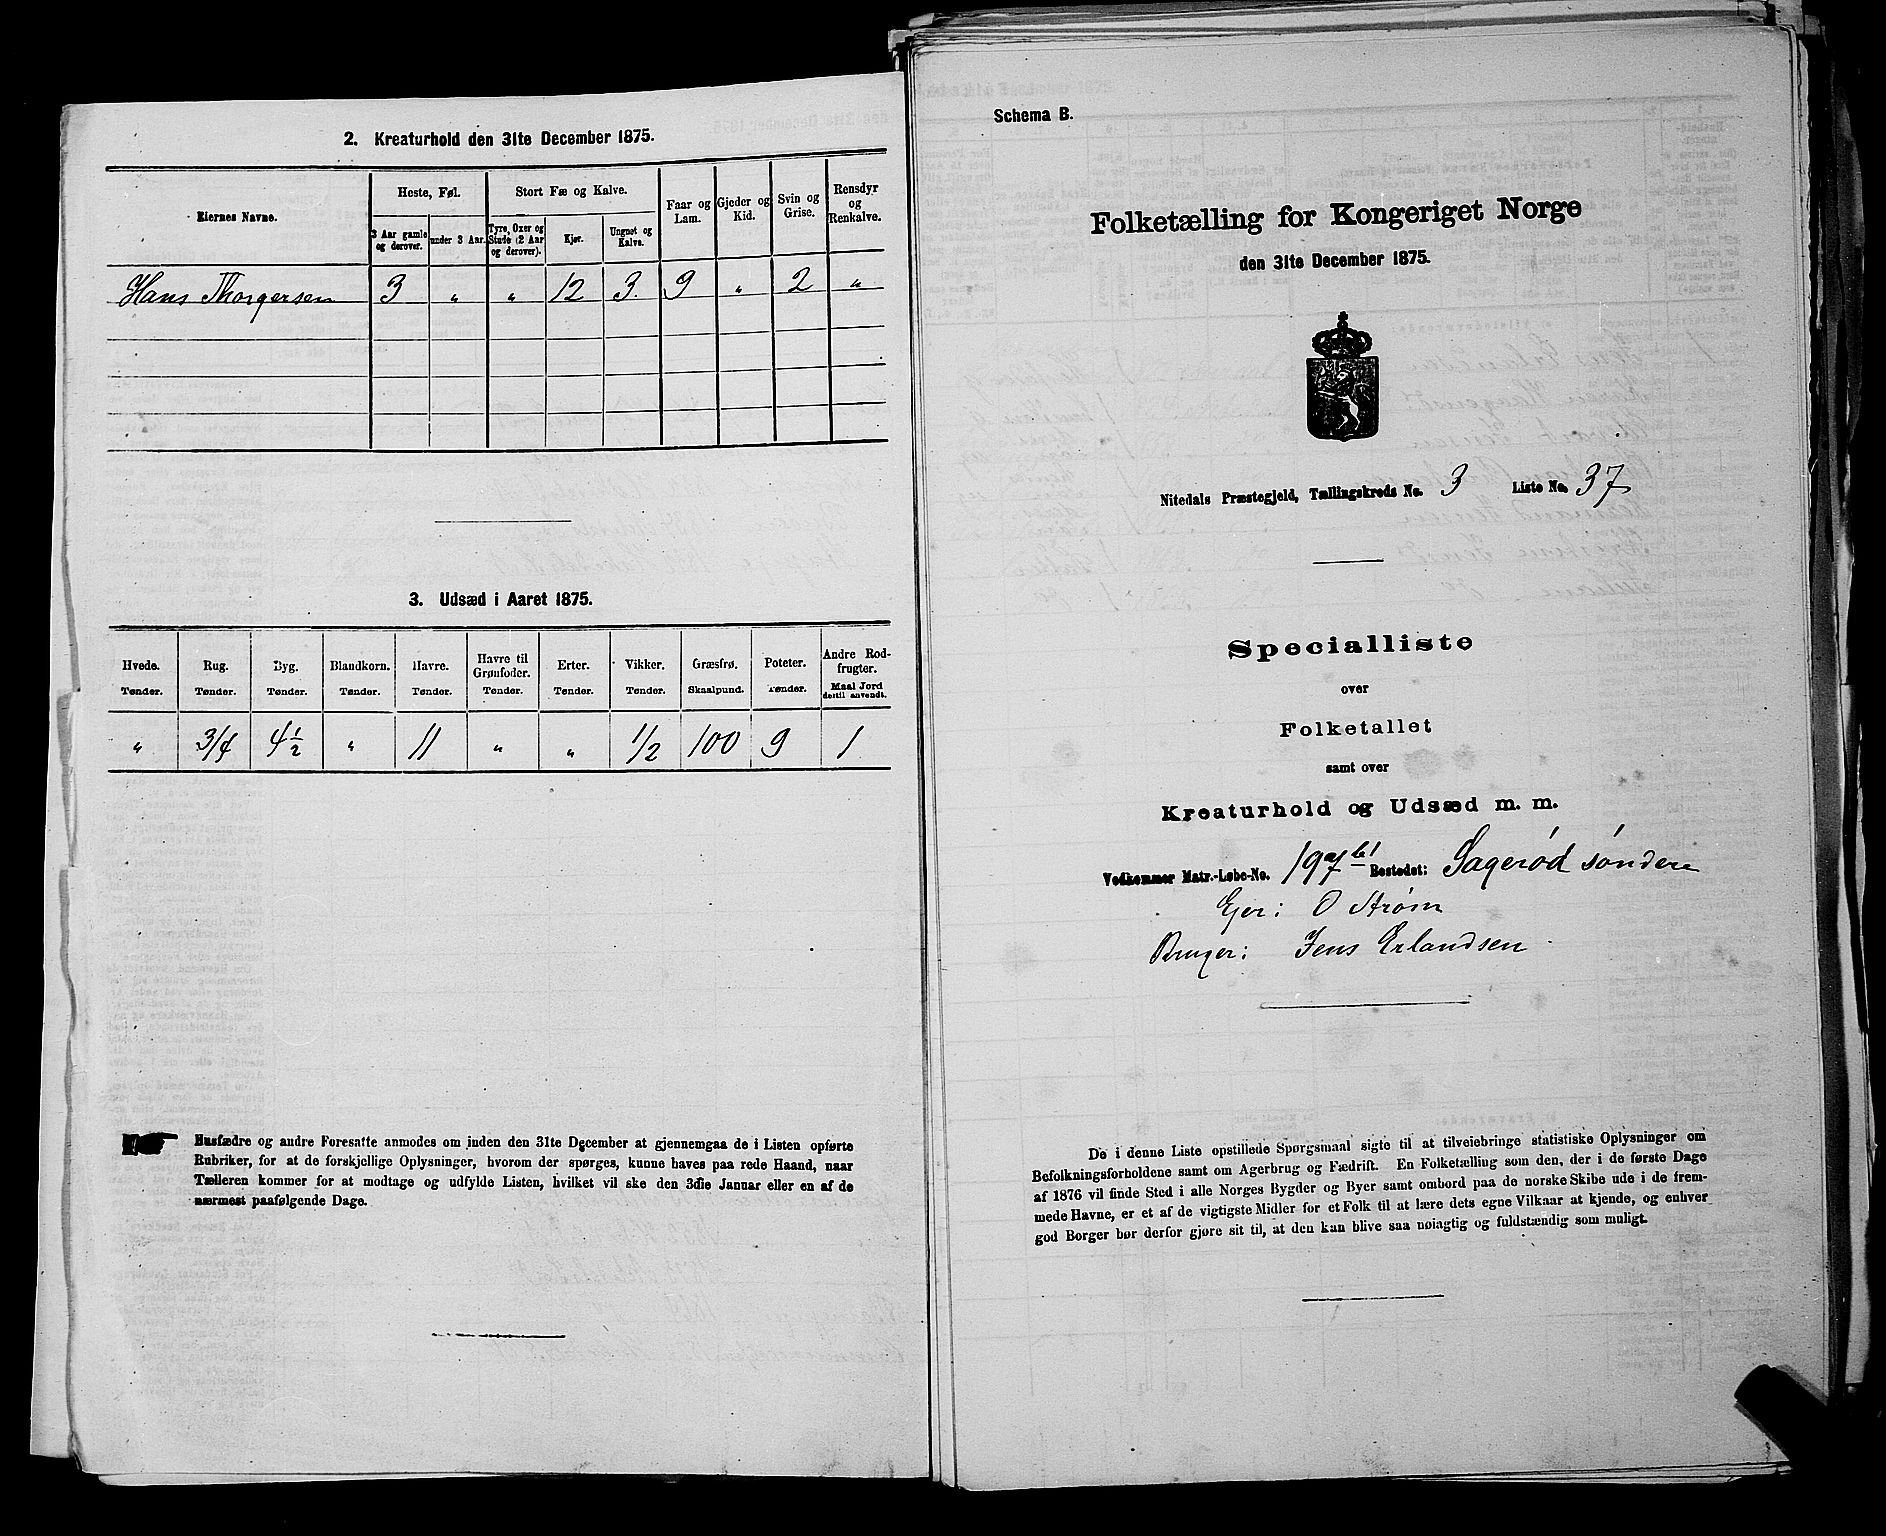 2. Kreaturhold den 31te December 1875.
Eiernes Navne.
Heste, Føl.
3 Aar gamle og derover.
under 3 Aar.
Stort Fæ og Kalve.
Tyre, Oxer og Stude (2 Aar og derover).
Kjør.
Ungnøt og Kalve.
Faar og Lam.
Gjeder og Kid.
Svin og Grise.
Rensdyr og Renkalve.
Hans Thorgersen 3 " " 12 3. 9 " 2 "
3. Udsæd i Aaret 1875.
Hvede. Rug. Byg. Blandkorn. Havre. Havre til Grønfoder. Erter. Vikker. Græsfrø. Poteter. Andre Rodfrugter.
Tønder. Tønder. Tønder. Tønder. Tønder. Tønder. Tønder. Tønder. Skaalpund. Tønder. Maal Jord dertil anvendt.
" 3/4 4 1/2 " 11 " " 1/2 100 9 1
Husfædre og andre Foresatte anmodes om inden den 31te December at gjennemgaa de i Listen opførte
Rubriker, for at de forskjellige Oplysninger, hvorom der spørges, kunne haves paa rede Haand, naar
Tælleren kommer for at modtage og udfylde Listen, hvilket vil ske den 3die Januar eller en af de
nærmest paafølgende Dage.
Schema B.
Folketælling for Kongeriget Norge
den 31te December 1875.
Nitedals Præstegjeld, Tællingskreds No. 3 Liste No. 37
Specialliste
over
Folketallet
samt over
Kreaturhold og Udsæd m. m.
Vedkommer Matr.-Løbe-No. 197 b1 Bostedet: Sagerød søndre
Ejer: O Strøm
Bruger: Jens Erlandsen
De i denne Liste opstillede Spørgsmaal sigte til at tilveiebringe statistiske Oplysninger om
Befolkningsforholdene samt om Agerbrug og Fædrift. En Folketælling som den, der i de første Dage
af 1876 vil finde Sted i alle Norges Bygder og Byer samt ombord paa de norske Skibe ude i de frem-
mede Havne, er et af de vigtigste Midler for et Folk til at lære dets egne Vilkaar at kjende, og enhver
god Borger bør derfor gjøre sit til, at den kan blive saa nøiagtig og fuldstændig som muligt.